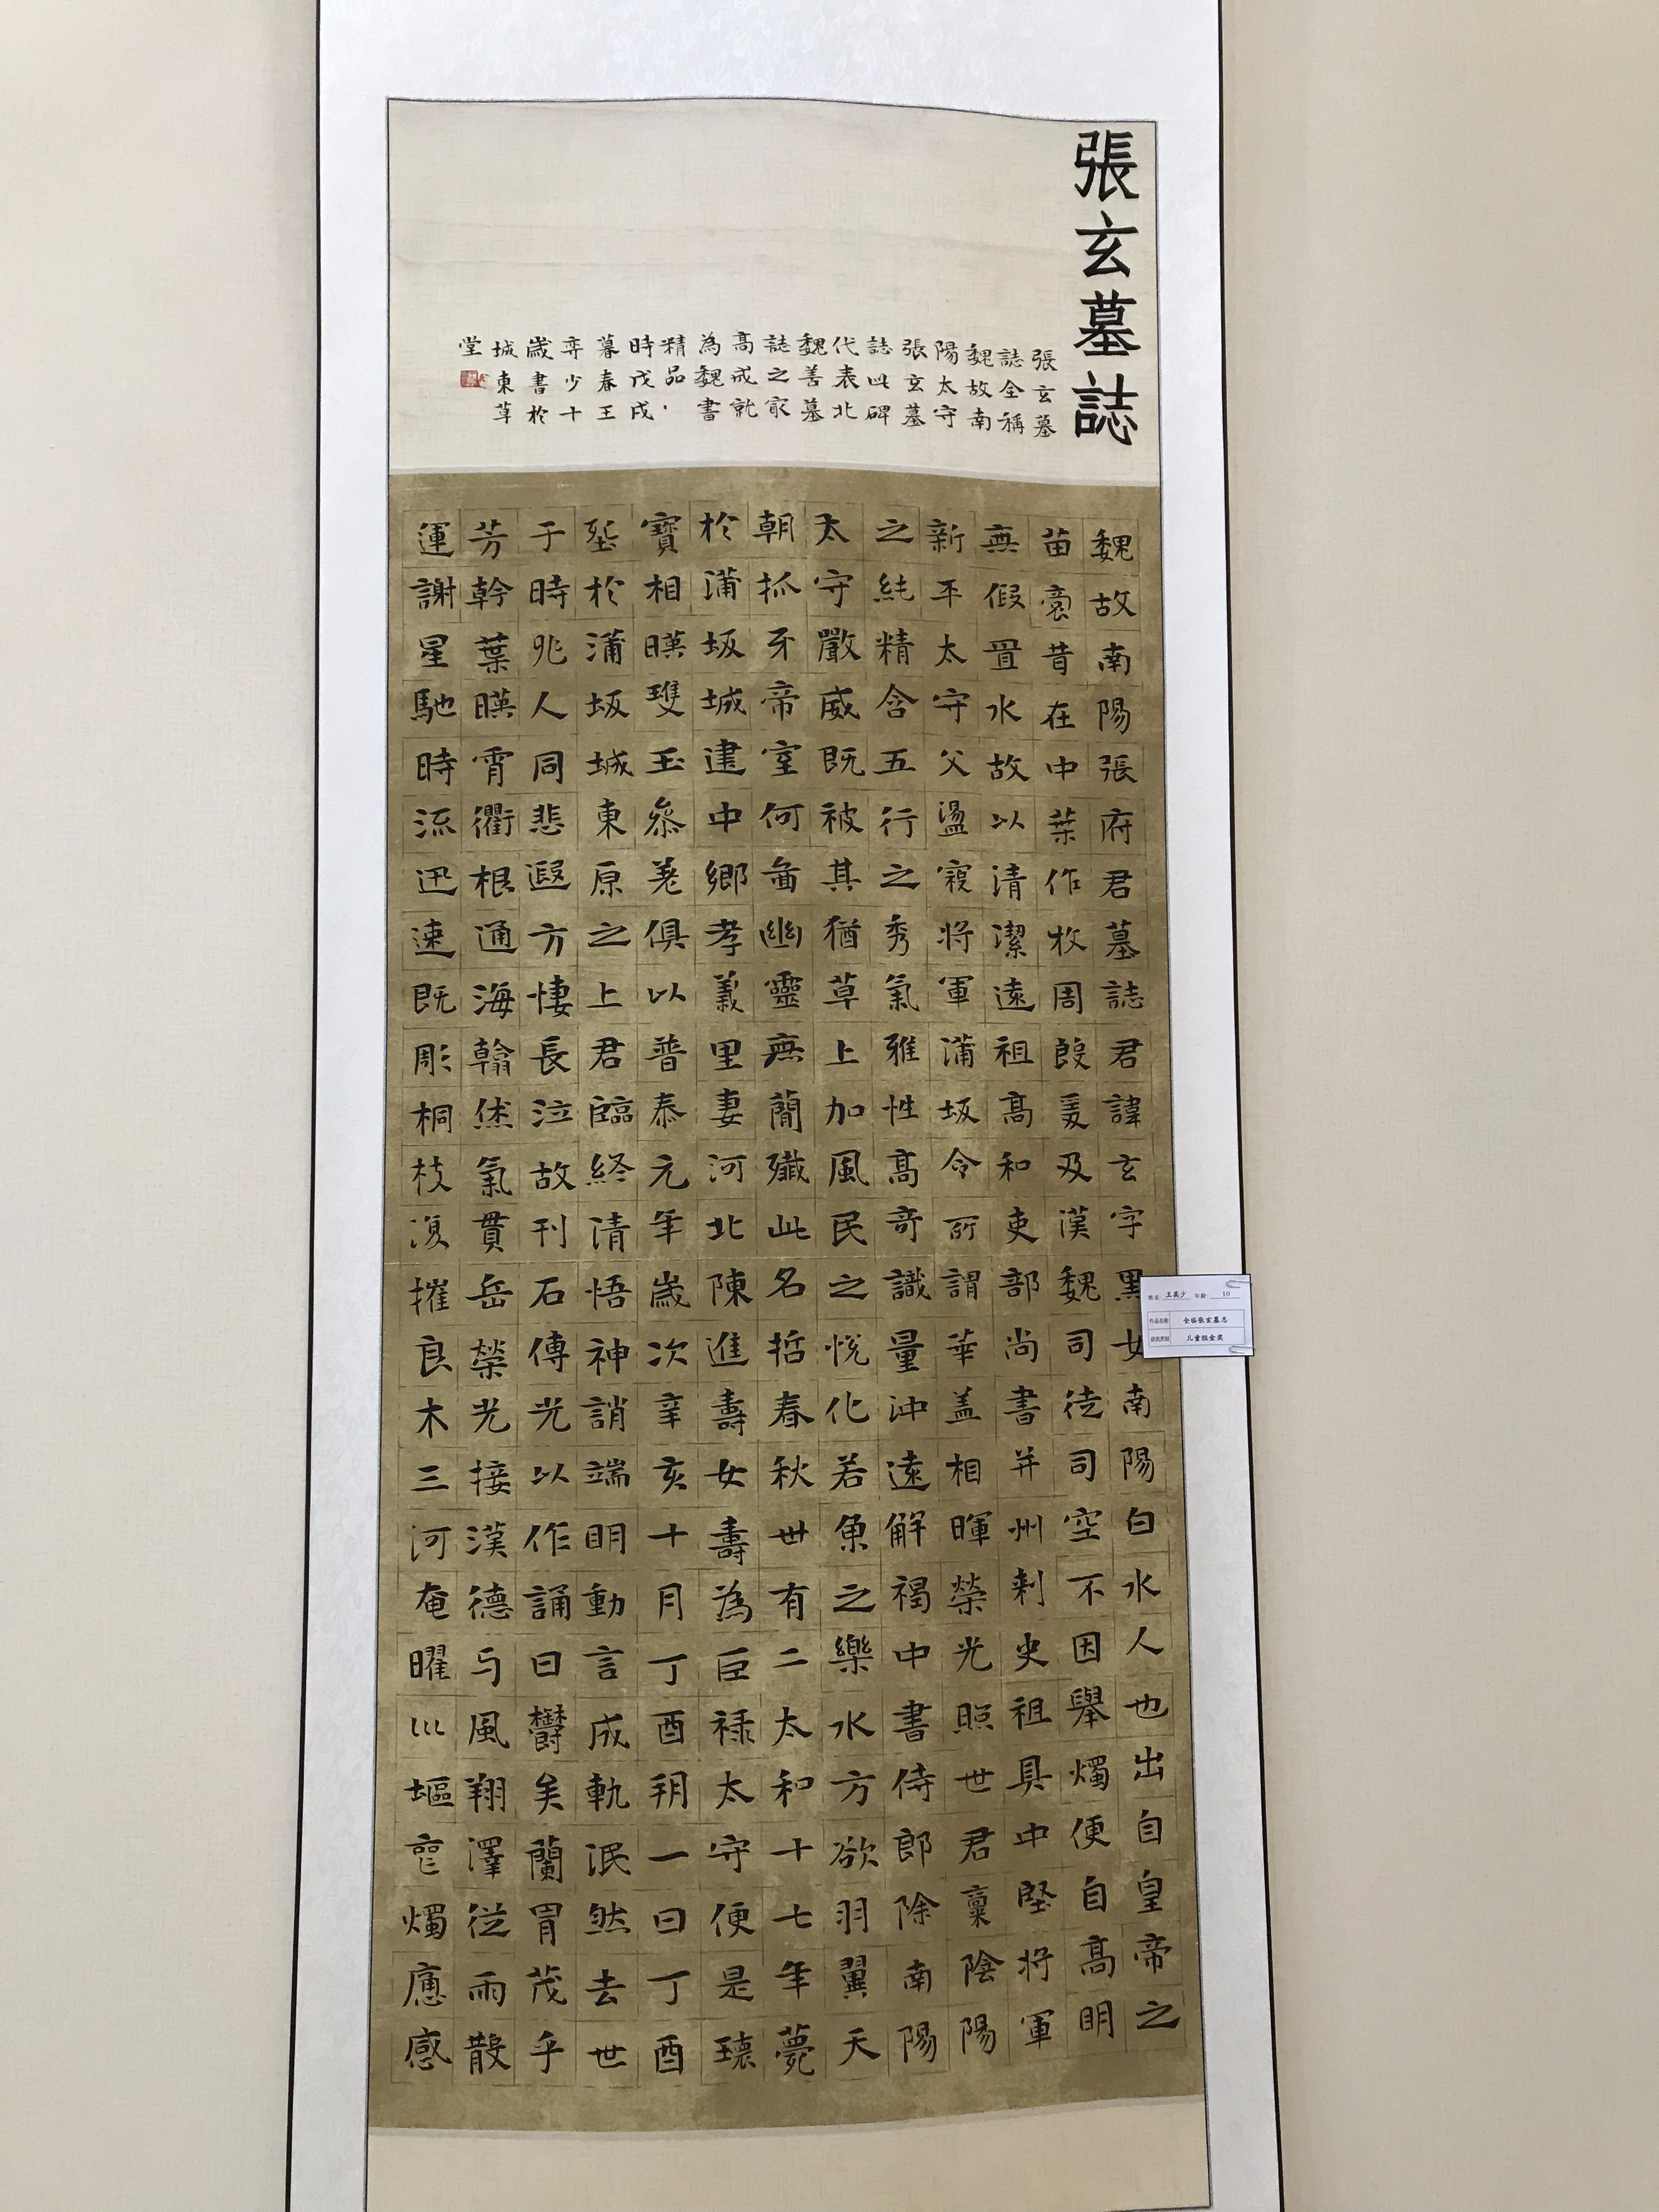 張玄墓誌
張玄墓
誌全稱
魏故南
陽太守
張玄墓
誌此碑
代表北
魏善墓
誌之家
高成就
為魏書
精品、
時戊戌
暮春王
弈少十
歲書於
城東草
堂
魏故南陽張府君墓誌君諱玄字黑女南陽白水人也出自皇帝之
苗裔昔在中葉作牧周殷爰及漢魏司徒司空不因舉燭便自高明
無假置水故以清潔遠祖高和吏部尚書并州刾史祖具中堅將軍
新平太守父盪寇將軍蒲坂令所謂華盖相暉榮光照世君稟陰陽
之純精含五行之秀氣雅性高奇識量沖遠解褐中書侍郎除南陽
太守嚴威既被其猶草上加風民之悅化若魚之樂水方欲羽翼天
朝抓牙帝室何啚幽靈無簡殲此名哲春秋世有二太和十七年薨
於蒲坂城建中鄉孝義里妻河北陳進壽女壽為巨祿太守便是瓌
寶相暎雙玉參差俱以普泰元年歲次辛亥十月丁酉朔一日丁酉
塟於蒲坂城東原之上君臨終清悟神誚端明動言成軌泯然去世
于時兆人同悲遐方悽長泣故刊石傳光以作誦曰欝矣蘭胄茂乎
芳幹葉暎霄衢根通海翰烋氣貫岳榮光接漢德与風翔澤從雨散
運謝星馳時流迅速既彫桐枝復摧良木三河奄曜巛塸喪燭應感
姓名:王奕少 年龄:10
作品名称 全临张玄墓志
获奖类别 儿童组金奖